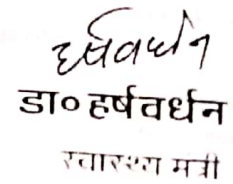 हर्षवर्धन
डा० हर्षवर्धन
स्वास्थ्य मंत्री